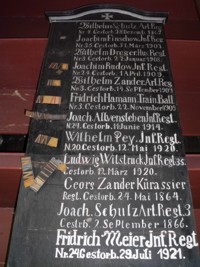 Wilhelm Schulz Art. Reg.
Nr. 2. Gestorb. 28 Decemb. 1902
Joachim Finschow Inf. Reg.
Gestorb. 31. März 1903.
Wilhelm Dreger Inf. Reg.
Gestorb. 1903.
Joachim Rudow Inf. Reg.
Gestorb. 1 April 1909.
Wilhelm Zander Art. Reg.
Gestorb. 14. September 1909
Fridrich Hamann Train Batl
Nr. 3. Gestorb. 22. November 1909
Joach. Allvensleben Inf. Regt.
N. 24. Gestorb. 11. Junie 1914.
Wilhelm Pey. Inf. Regt.
N. 20. Gestorb. 12. Mai 1920.
Ludwig Witstruck Inf. Regt. 35.
Gestorb. 12. März 1920.
Georg Zander Kürassier
Regt. Gestorb. 24. Mai 1864.
Joach. Schulz Art. Regt. 3
Gestrb. 7 September 1866.
Fridrich Meier Inf. Regt
Nr. 24. Gestorb. 29. Juli 1921.